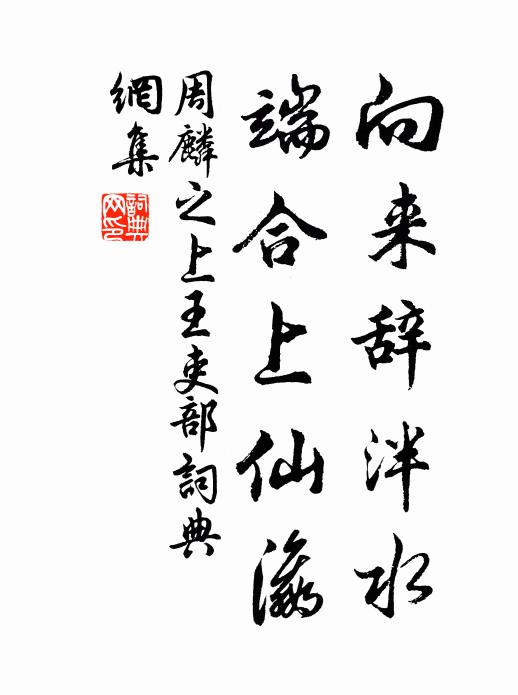 向来辞泮水
端合上仙瀛
周麟之上王吏部詞典
網集
詞典網印